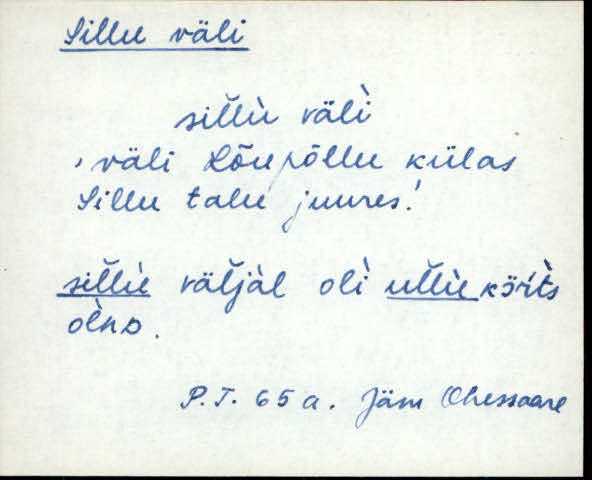 Sillu väli
sillù väli
'väli Lõupõllu külas
Sillu talu juures.'
sillù väljal oli ullù kõrits
olno.
P.T. 65 a. Jäm Ohessaare